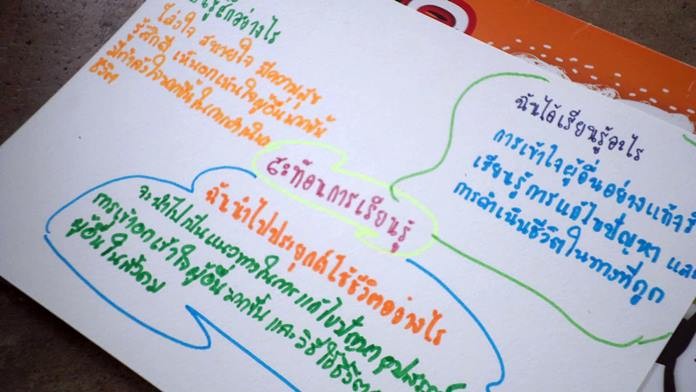 ฉันรู้สึกอย่างไร
โล่งใจ สบายใจ มีความสุข
รู้สึกดี เห็นอกเห็นใจผู้อื่นมากขึ้น
มีกำลังใจมากขึ้นในการ
ชีวิต
ฉันได้เรียนรู้อะไร
การเข้าใจผู้อื่นอย่างแท้จริ
เรียนรู้การแก้ไขปัญหา และ
การดำเนินชีวิตในทางที่ถูก
สะท้อนการเรียนรู้
ฉันนำไปประยุกต์ใช้ชีวิตอย่างไร
จะนำไปเป็นแนวทางในการแก้ไขปัญหา อุปสรรค
การเข้าอกเข้าใจผู้อื่นมากขึ้น และวิธีใช้ชีวิต
ผู้อื่นในสังคม